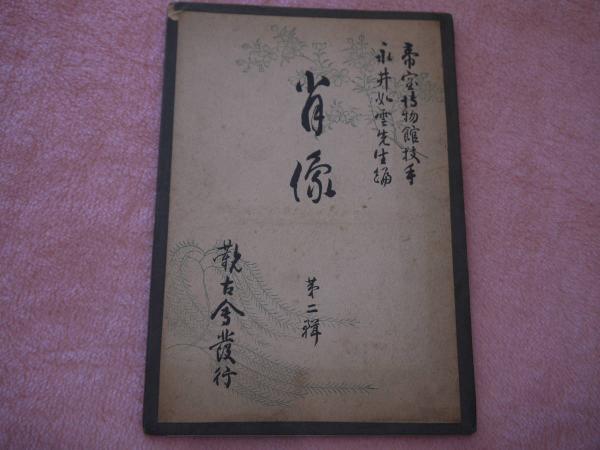 帝室博物館技手
永井如雲先生編
肖像
第二輯
觀古會發行